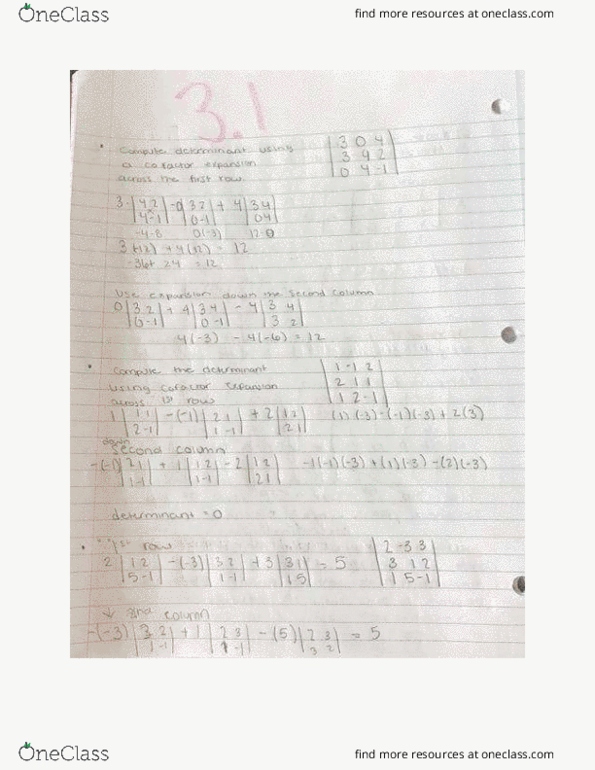 OneClass
find more resources at oneclass.com
3.1
• Compute determinant using
a cofactor expansion
across the first row
|3 0 4|
|3 4 2|
|0 4 -1|
3 |4 2| -0 |3 2| + 4 |3 4|
|4 -1| |0 -1| |0 4|
-4-8 0(-3) 12-0
3(-12) + 4(12) = 12
-36+ 24 = 12
Use expansion down the second column
0 |3 2| + 4 |3 4| - 4 |3 4|
|0 -1| |0 -1| |3 2|
4(-3) - 4(-6) = 12
• Compute the determinant
using cofactor expansion
across 1st row
|1 -1 2|
|2 1 1|
|1 2 -1|
1 |1 1| -(-1) |2 1| + 2 |1 2|
|2 -1| |1 -1| |2 1|
(1)(-3)-(-1)(-3)+2(3)
down
second column
-(-1) |2 1| + 1 |1 2| - 2 |1 2|
|1 -1| |1 -1| |2 1|
-1(-1)(-3)+(1)(-3)-(2)(-3)
determinant = 0
• 1st row
|2 -3 3|
|3 1 2|
|1 5 -1|
2 |1 2| -(-3) |3 2| + 3 |3 1| = 5
|5 -1| |1 -1| |1 5|
↓ 2nd column
-(-3) |3 2| + 1 |2 3| - (5) |2 3| = 5
|1 -1| |1 -1| |3 2|
OneClass
find more resources at oneclass.com